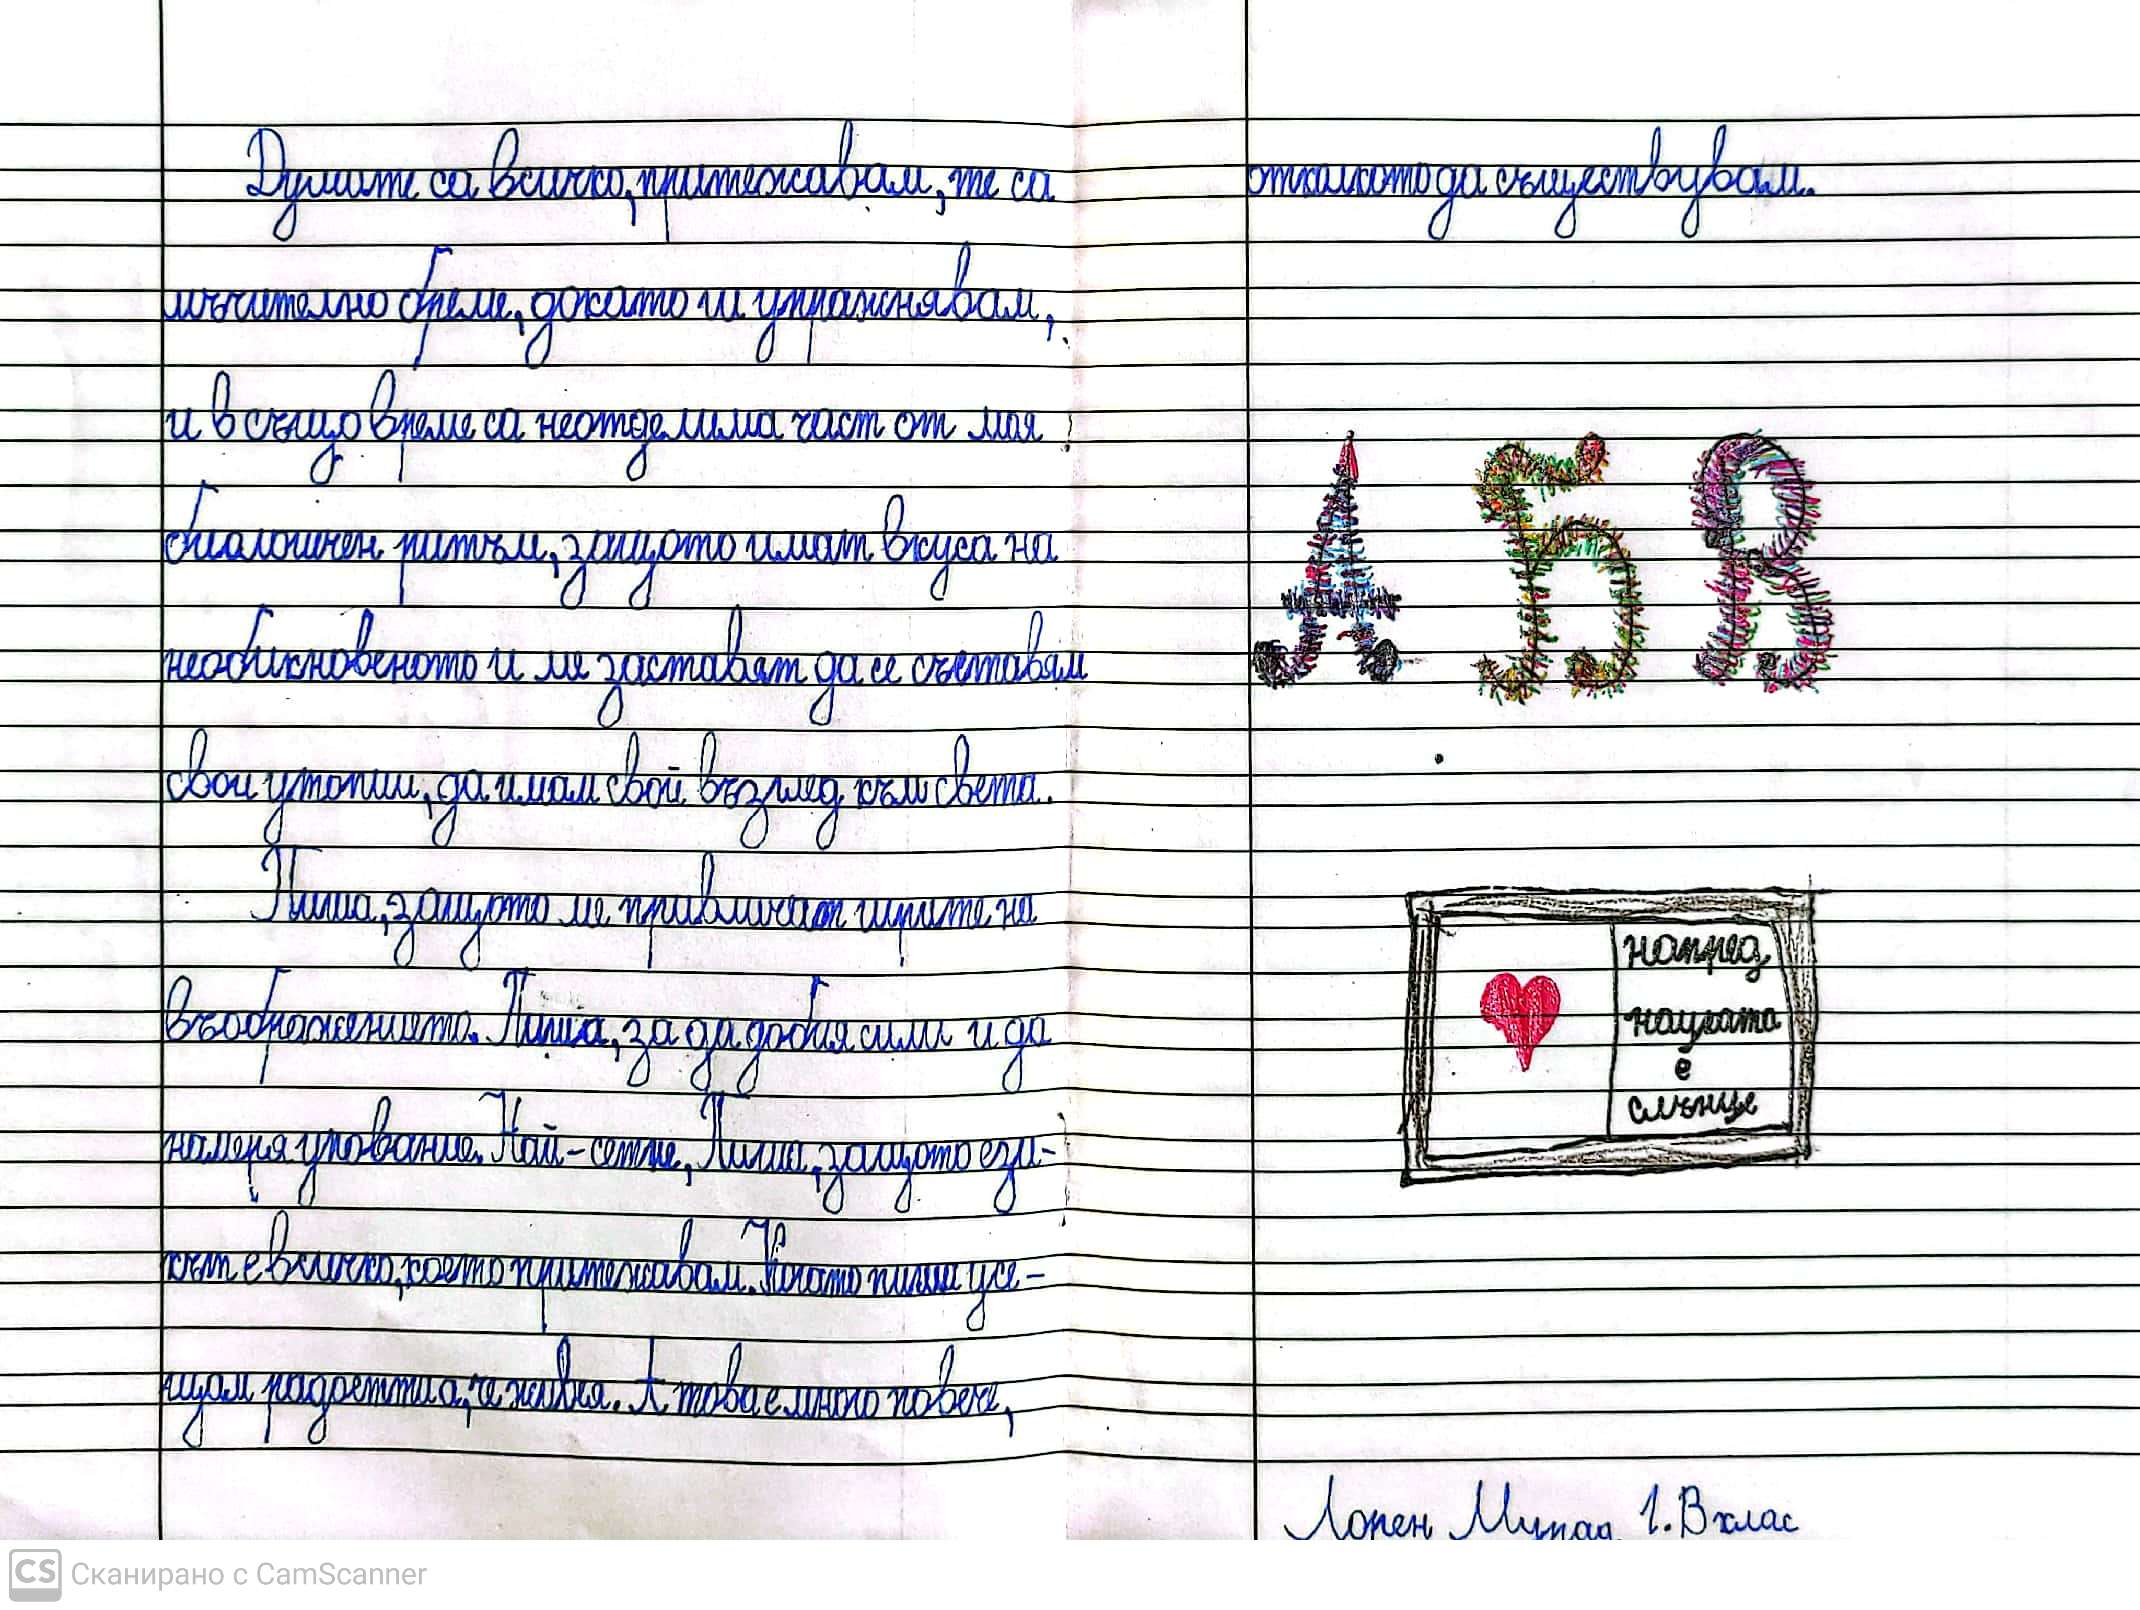 Думите са всичко, притежавам, те са
мъчително бреме, докато ги упражнявам,
и в също време са неотделима част от моя
биологичен ритъм, защото имат вкуса на
необикновеното и ме заставят да се съставям
свои утопии, да имам свой възглед към света.
Пиша, защото ме привличат игрите на
въображението. Пиша, за да добия сили и да
намеря упование. Най-сетне, Пиша, защото ези-
кът е всичко, което притежавам. Когато пиша усе-
щам радостта, че живея. А това е много повече,
отколкото да съществувам.
А Б В
напред
науката
е
слънце
Лорен Мурад 1. В клас
CS Сканирано с CamScanner